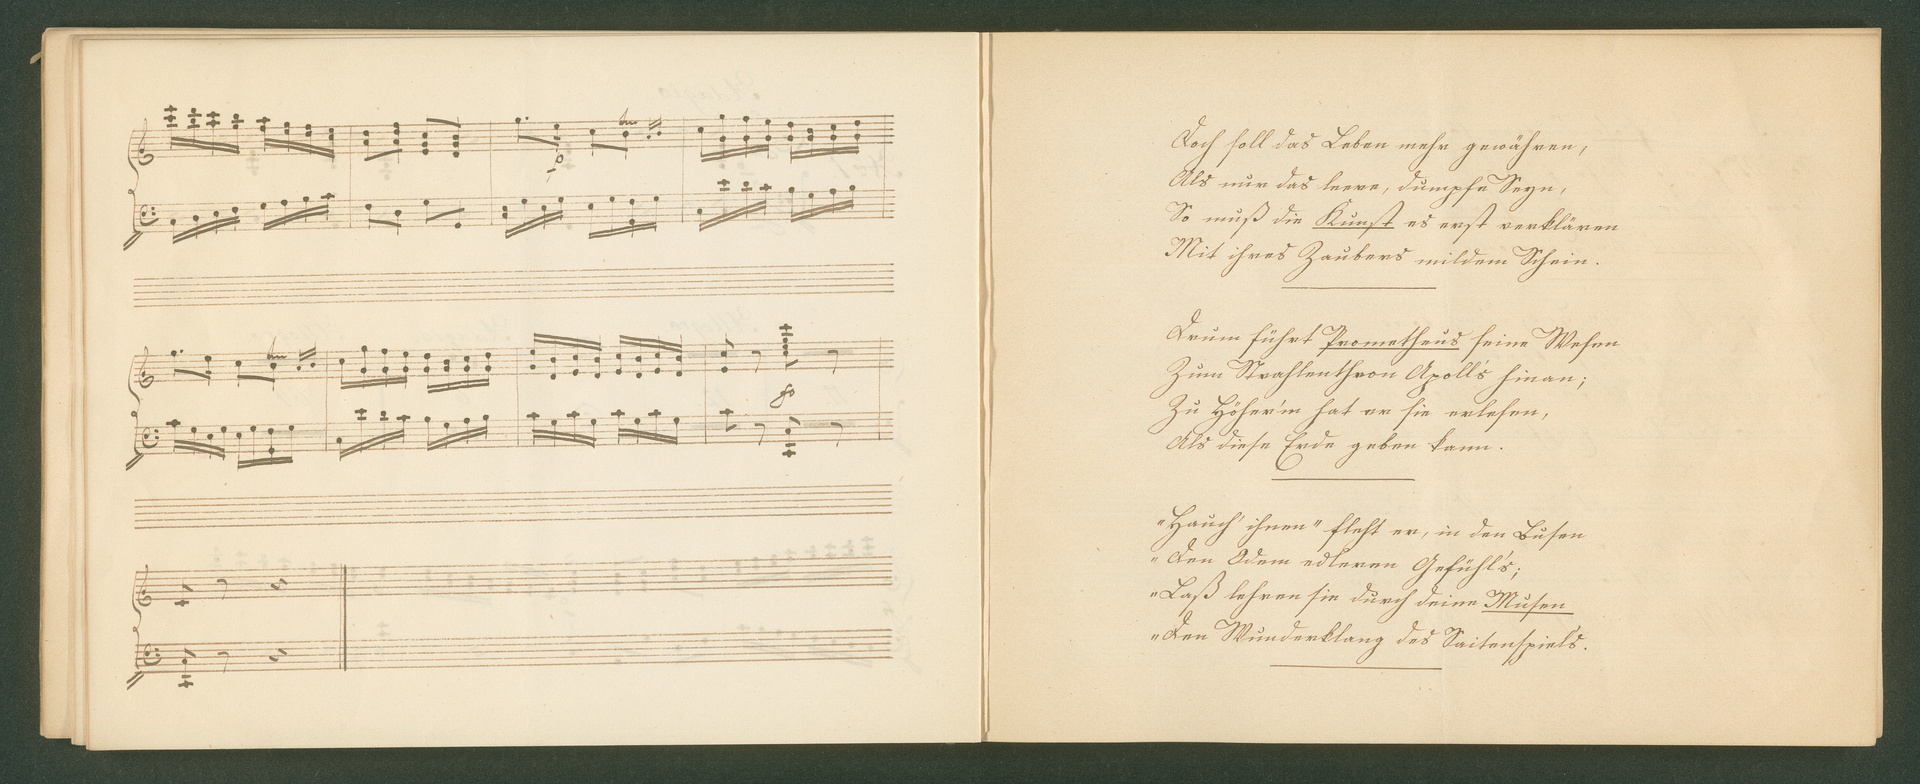 p
fo
Doch soll das Leben mehr gewähren,
Als nur das leere, dumpfe Seyn,
So muß die Kunst es erst verklären
Mit ihres Zaubers mildem Schein.
Drum führt Prometheus seine Wesen
Zum Strahlenthron Apoll's hinan;
Zu Höher'm hat er sie erlesen,
Als diese Erde geben kann.
"Hauch' ihnen" fleht er, in den Busen
"Den Odem edleren Gefühl's;
"Laß lehren sie durch deine Musen
"Den Wunderklang des Saitenspiels.